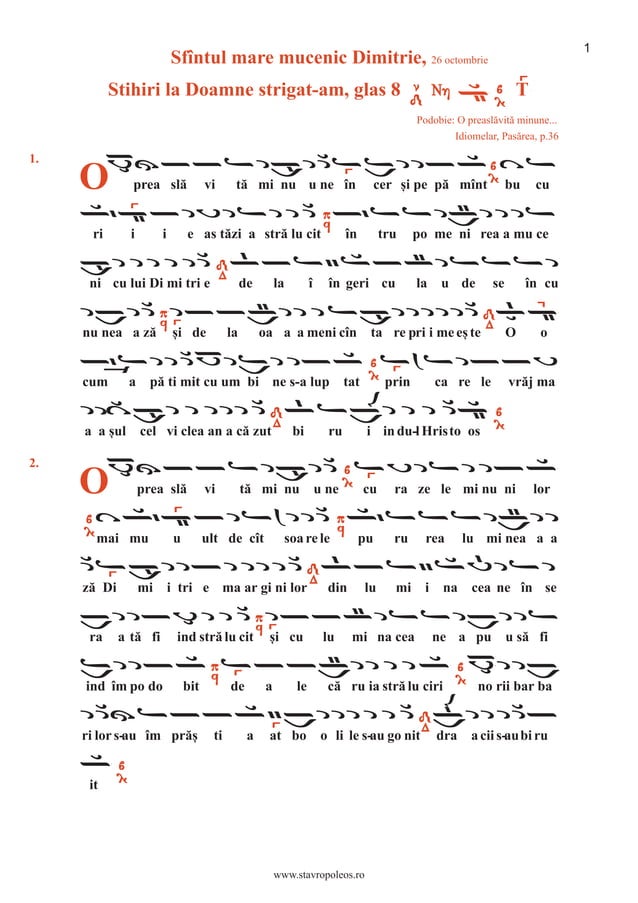 1
Sfîntul mare mucenic Dimitrie, 26 octombrie
Stihiri la Doamne strigat-am, glas 8 Νη
Podobie: O preaslăvită minune...
Idiomelar, Pasărea, p.36
1.
O prea slă vi tă mi nu u ne în cer și pe pă mînt bu cu
ri i i e as tăzi a stră lu cit în tru po me ni rea a mu ce
ni cu lui Di mi tri e de la î în geri cu la u de se în cu
nu nea a ză și de la oa a a meni cîn ta re pri i me eș te O o
cum a pă ti mit cu um bi ne s-a lup tat prin ca re le vrăj ma
a a șul cel vi clea an a că zut bi ru i in du-l Hris to os
2.
O prea slă vi tă mi nu u ne cu ra ze le mi nu ni lor
mai mu u ult de cît soa re le pu ru rea lu mi nea a a
ză Di mi i tri e ma ar gi ni lor din lu mi i na cea ne în se
ra a tă fi ind stră lu cit și cu lu mi na cea ne a pu u să fi
ind îm po do bit de a le că ru ia stră lu ciri no rii bar ba
ri lor s-au îm prăș ti a at bo o li le s-au go nit dra a cii s-au bi ru
it
www.stavropoleos.ro